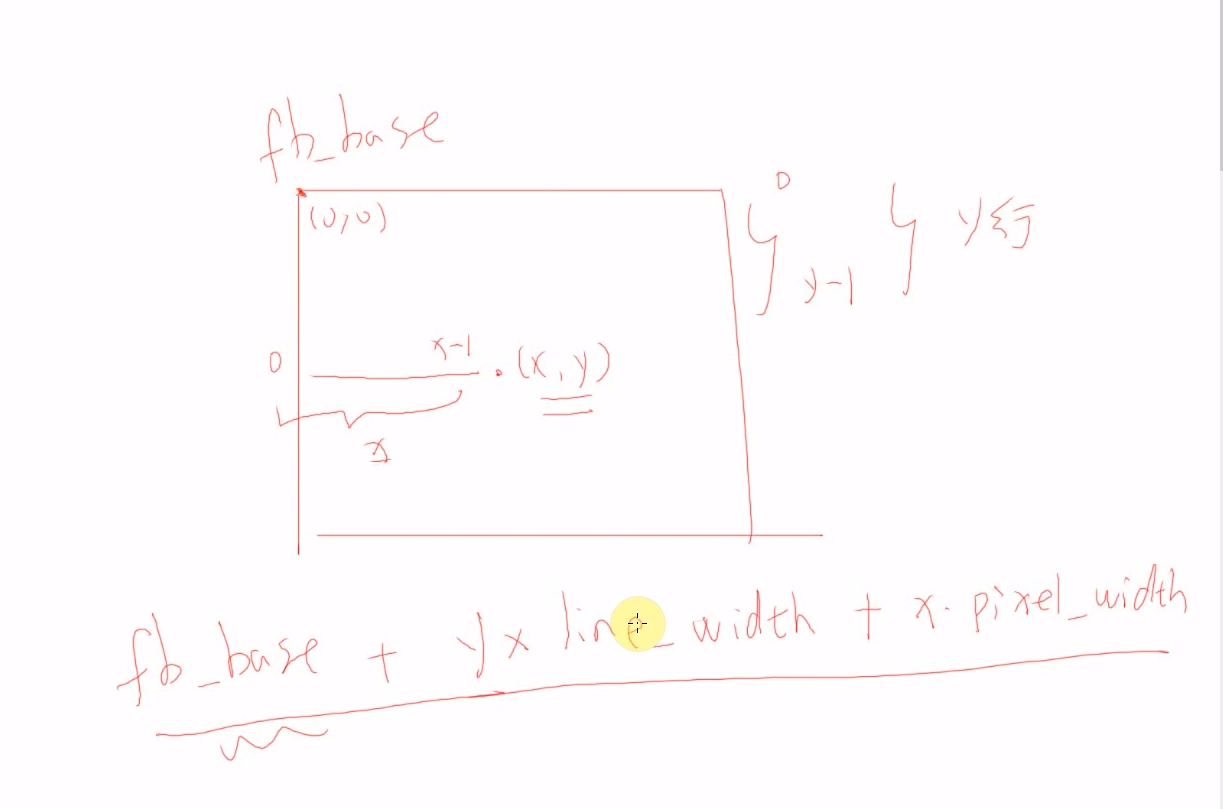 fb_base
(0,0)
0
y-1
y行
0
x-1
(x,y)
x
fb_base + y x line_width + x · pixel_width